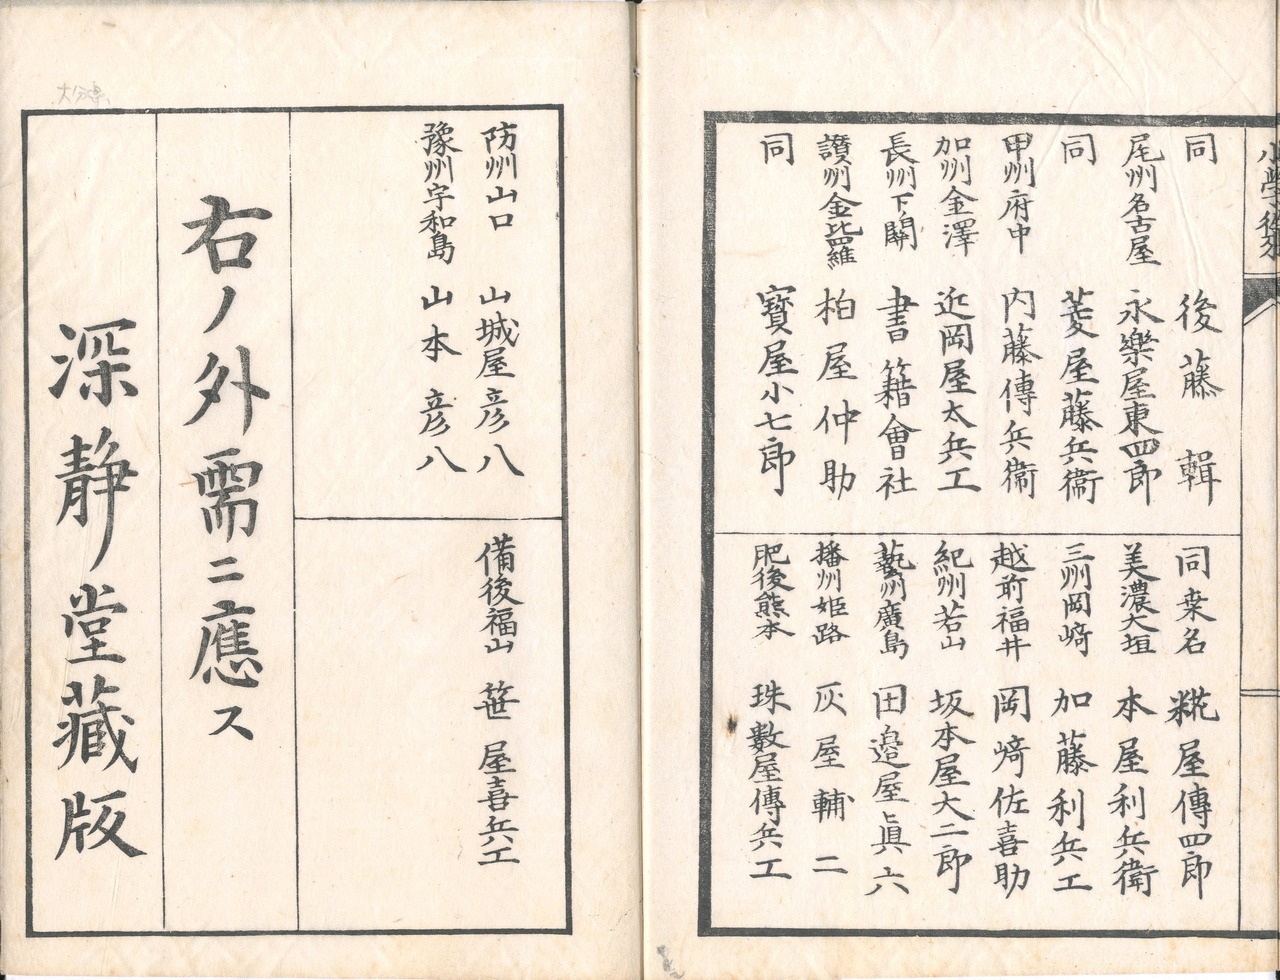 同　後藤　輯
尾州名古屋　永樂屋東四郎
同　菱屋藤兵衞
甲州府中　内藤傳兵衞
加州金澤　近岡屋太兵工
長州下ノ關　書籍會社
讃州金比羅　柏屋仲助
同　寶屋小七郎
同桒名　糀屋傳四郎
美濃大垣　本屋利兵衞
三州岡﨑　加藤利兵工
越前福井　岡﨑佐喜助
紀州若山　坂本屋大二郎
藝州廣島　田邉屋眞六
播州姫路　灰屋輔二
肥後熊本　珠數屋傳兵工
防州山口　山城屋彦八
豫州宇和島　山本彦八
備後福山　笹屋喜兵工
右ノ外需ニ應ス
深靜堂藏版